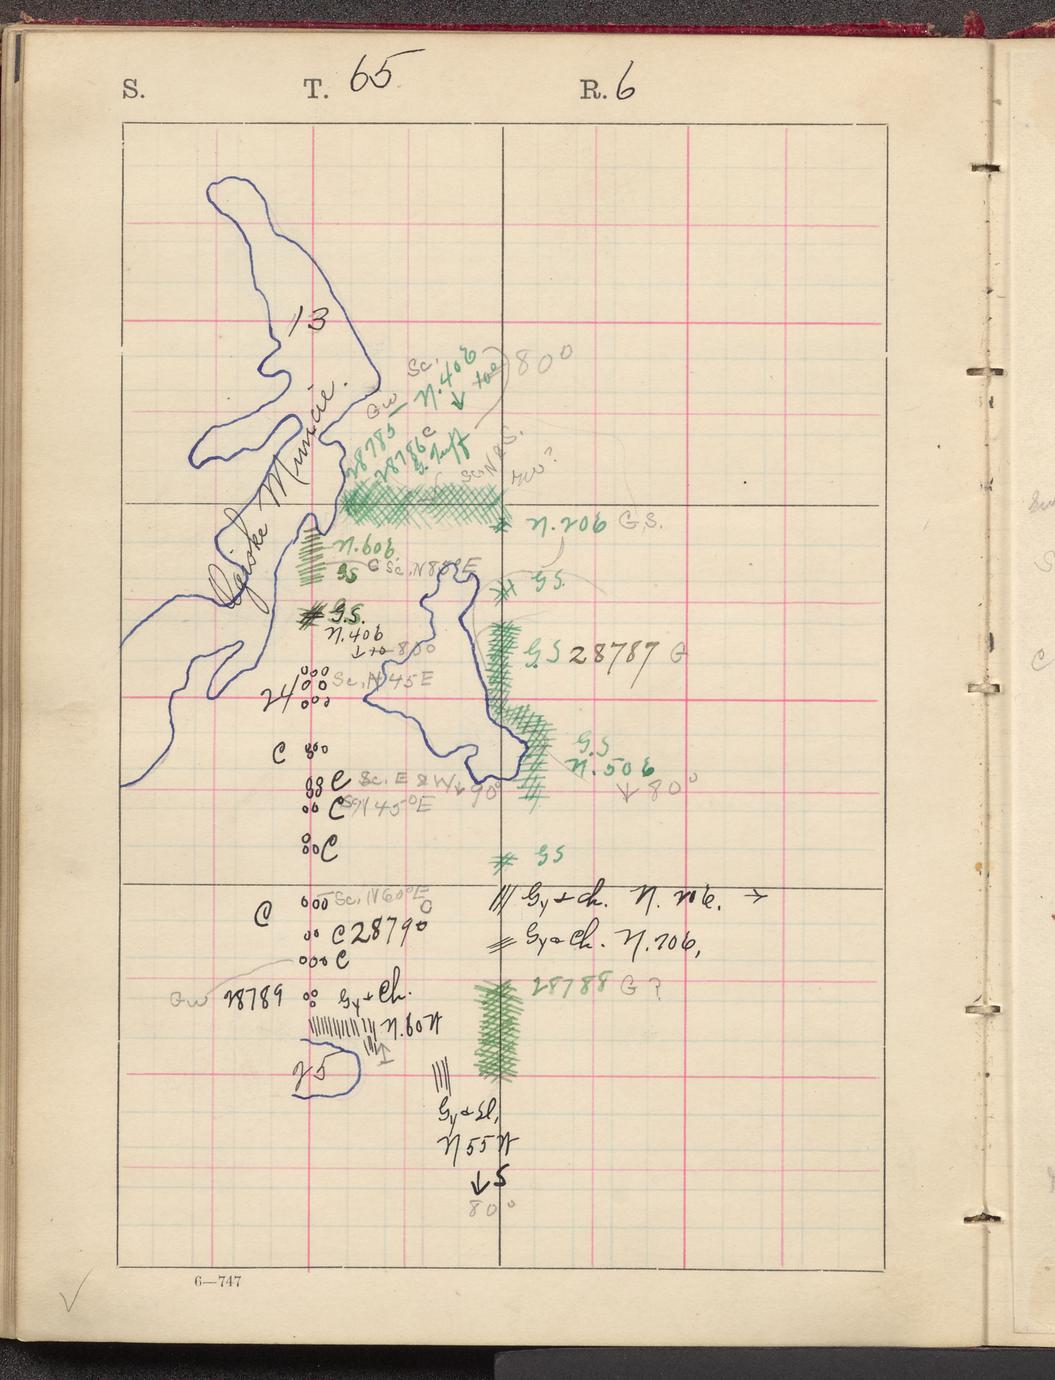 S. T. 65 R. 6
13
Ogiske Muncie.
Sc.
N. 40E
↓ to 80°
Gw
28785
28786 C
G. Tuff
Sc. N & S.
N. 20E G.S.
N. 60E
GS
C Sc. N 80 E
GS.
G.S.
N. 40E
↓ to 80°
G.S 28787 G
24 Sc. N 45 E
G.S
N. 50E
↓ 80°
C
C Sc. E & W ↓ 90°
C N 45° E
C
GS
Sc. N 60° E
C
Gy + Ch. N. 70E. →
C 28790
Gy + Ch. N. 70E,
C
28788 G ?
Gw 28789 Gy + Ch.
N. 60W
25
Gy + Sl,
N 55 W
↓ S
80°
6—747